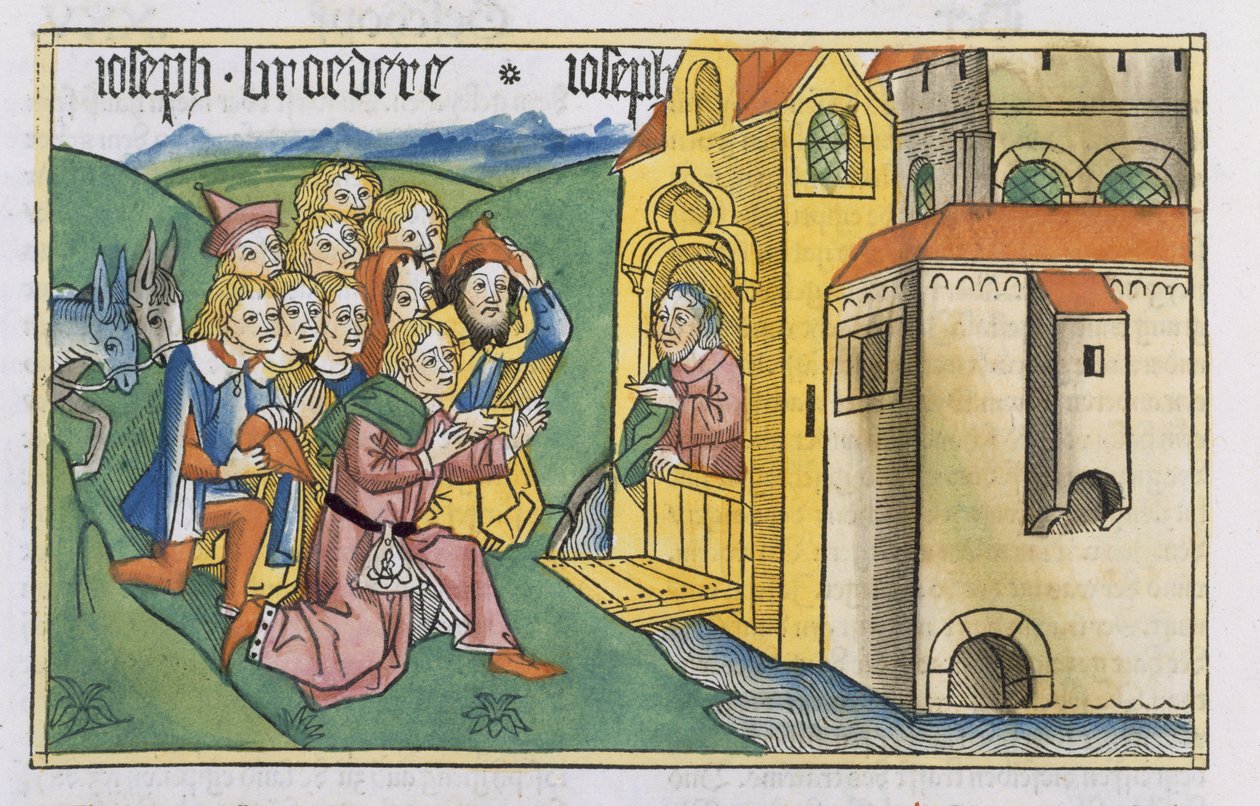 ioseph · broedere * ioseph